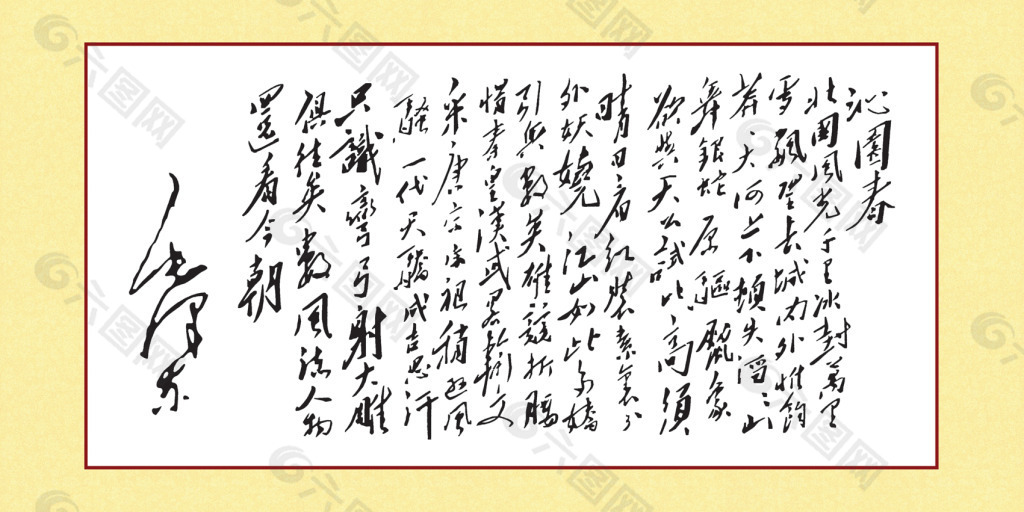 沁園春
北國風光千里冰封萬里
雪飄望長城内外惟餘
莽〻大河上下頓失滔〻山
舞銀蛇原驅臘象
欲與天公試比高須
晴日看紅裝素裹分
外妖嬈江山如此多嬌
引無數英雄競折腰
惜秦皇漢武略輸文
采唐宗宋祖稍遜風
騷一代天驕成吉思汗
只識彎弓射大雕
俱往矣數風流人物
還看今朝
毛澤東
六图网